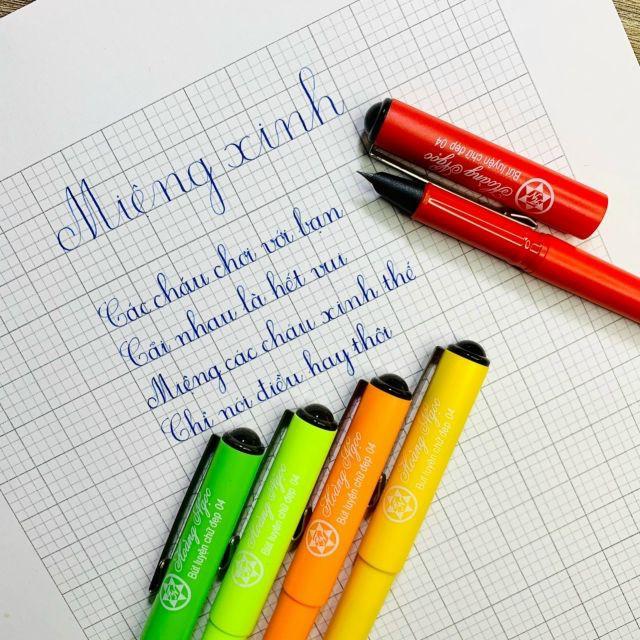 Miệng xinh
Các cháu chơi với bạn
Cãi nhau là hết vui
Miệng các cháu xinh thế
Chỉ nói điều hay thôi
Hoàng Ngọc
Bút luyện chữ đẹp 04
Hoàng Ngọc
Bút luyện chữ đẹp 04
Hoàng Ngọc
Bút luyện chữ đẹp 04
Hoàng Ngọc
Bút luyện chữ đẹp 04
Hoàng Ngọc
Bút luyện chữ đẹp 04